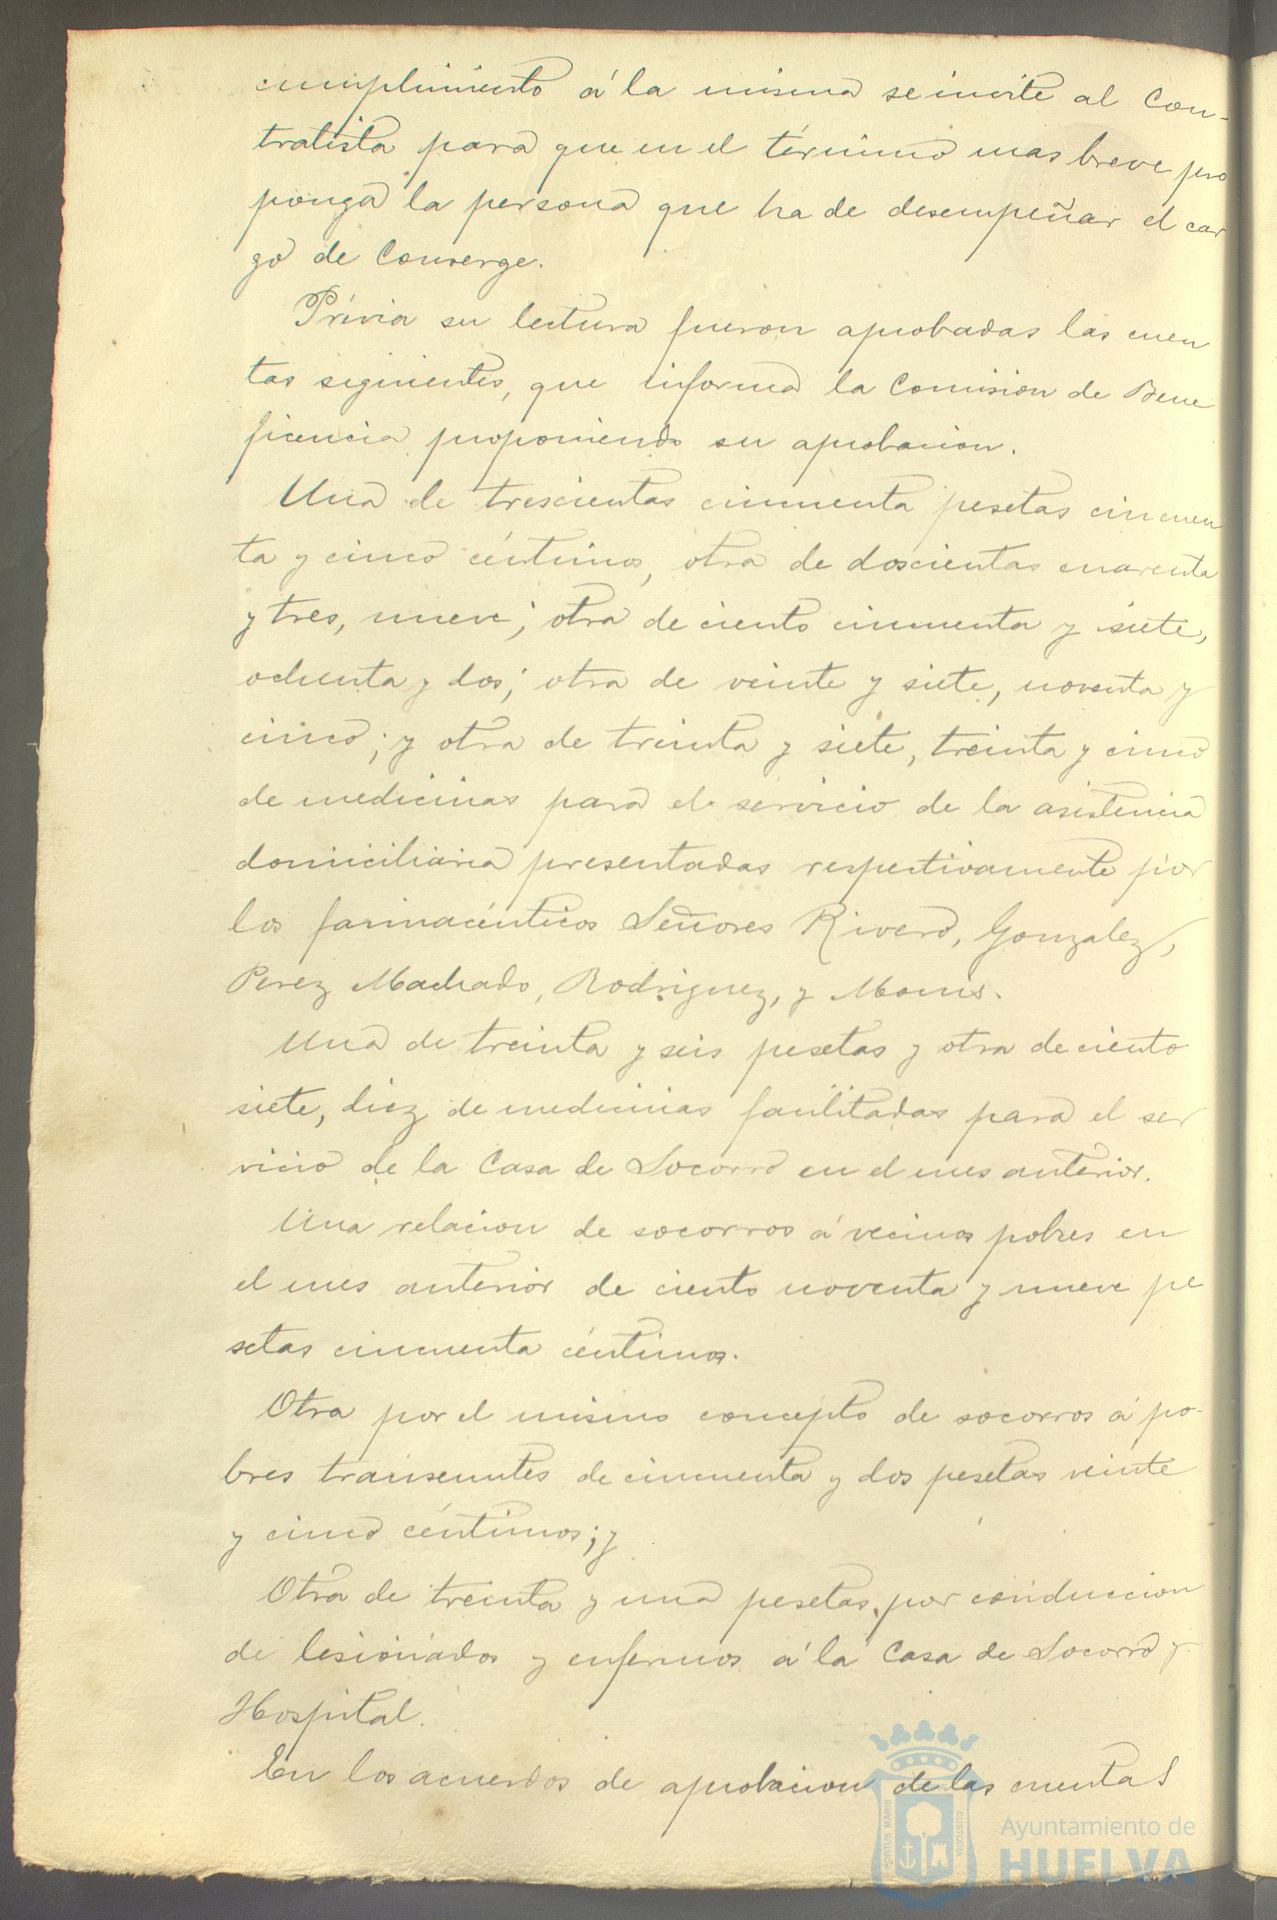 cumplimiento á la misma se invite al Con-
tratista para que en el término mas breve pro
ponga la persona que ha de desempeñar el car
go de Conserge.
Prévia su lectura fueron aprobadas las cuen
tas siguientes, que informa la Comision de Bene
ficencia proponiendo su aprobacion.
Una de trescientas cincuenta pesetas cincuen
ta y cinco céntimos, otra de doscientas cuarenta
y tres, nueve; otra de ciento cincuenta y siete,
ochenta y dos; otra de veinte y siete, noventa y
cinco; y otra de treinta y siete, treinta y cinco
de medicinas para el servicio de la asistencia
domiciliaria presentadas respectivamente por
los farmacéuticos Señores Rivero, Gonzalez,
Perez Machado, Rodriguez, y
Una de treinta y seis pesetas y otra de ciento
siete, diez de medicinas facilitadas para el ser
vicio de la Casa de Socorro en el mes anterior.
Una relacion de socorros á vecinos pobres en
el mes anterior de ciento noventa y nueve pe
setas cincuenta céntimos.
Otra por el mismo concepto de socorros á po-
bres transeuntes de cincuenta y dos pesetas veinte
y cinco céntimos; y
Otra de treinta y una pesetas, por conduccion
de lesionados y enfermos á la Casa de Socorro y
Hospital.
En los acuerdos de aprobacion de las cuentas
PORTUS MARIS
CUSTODIA
Ayuntamiento de
HUELVA